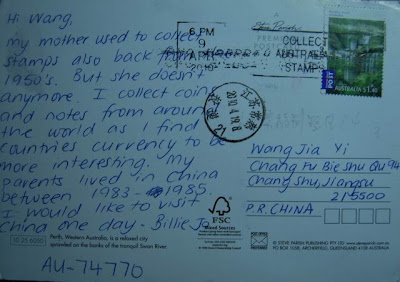 Hi Wang,
my mother used to collect
stamps also back from
1950's. But she doesn't
anymore. I collect coins
and notes from around
the world as I find
countries currency to be
more interesting. My
parents lived in China
between 1983-1985.
I would like to visit
China one day - Billie Jo
Perth, Western Australia, is a relaxed city
sprawled on the banks of the tranquil Swan River
AU-74770
6 PM
9
APR
2010
COLLECT
AUSTRALIAN
STAMPS
AUSTRALIA $1.40
POST
2010.4.19.8
Wang Jia Yi
Chang Fu Bie Shu Qu 94
Chang shu, Jiangsu
215500
P.R. CHINA
FSC
Mixed Sources
© STEVE PARISH PUBLISHING PTY LTD